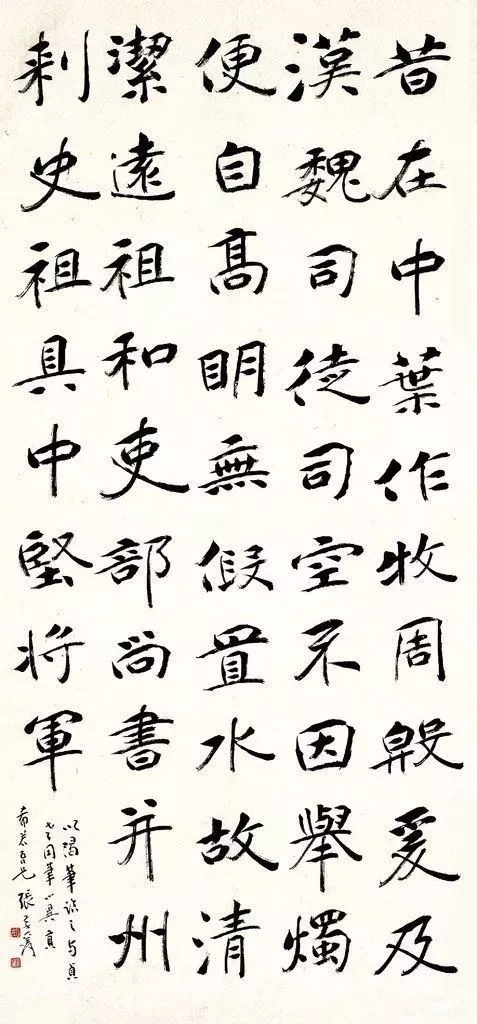 昔在中葉作牧周殷爰及
漢魏司徒司空不因舉燭
便自髙眀無假置水故清
潔遠祖和吏部尚書并州
刺史祖具中堅將軍
以渴筆臨之与
同筆
吾兄 張爰